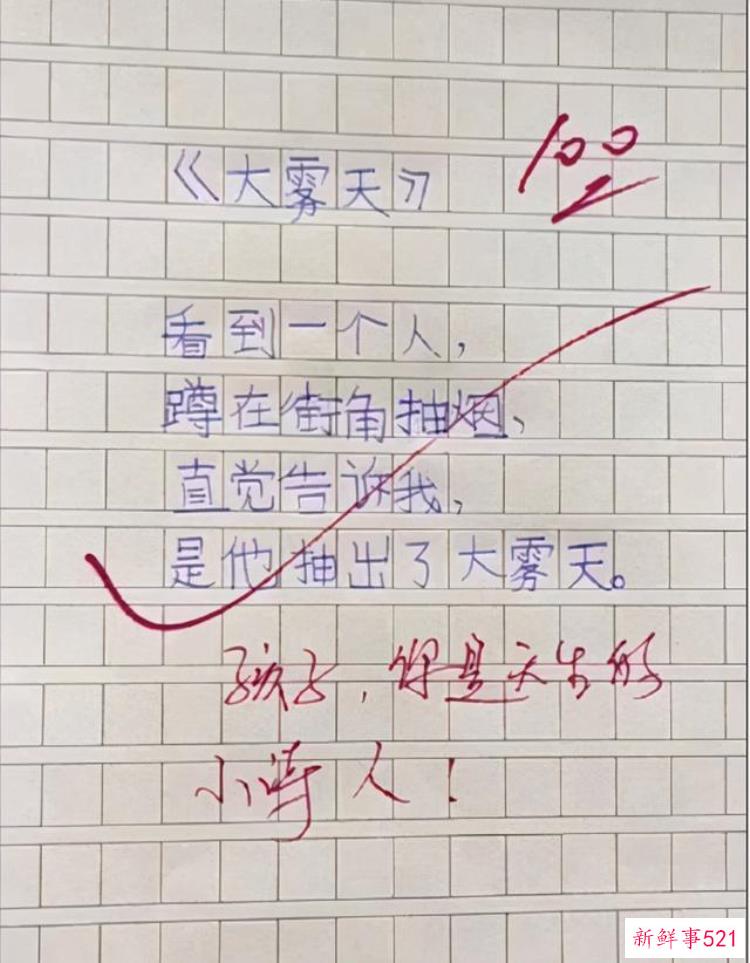 《大雾天》
100
看到一个人，
蹲在街角抽烟、
直觉告诉我，
是他抽出了大雾天。
孩子，你是天生的
小诗人！
新鲜事521